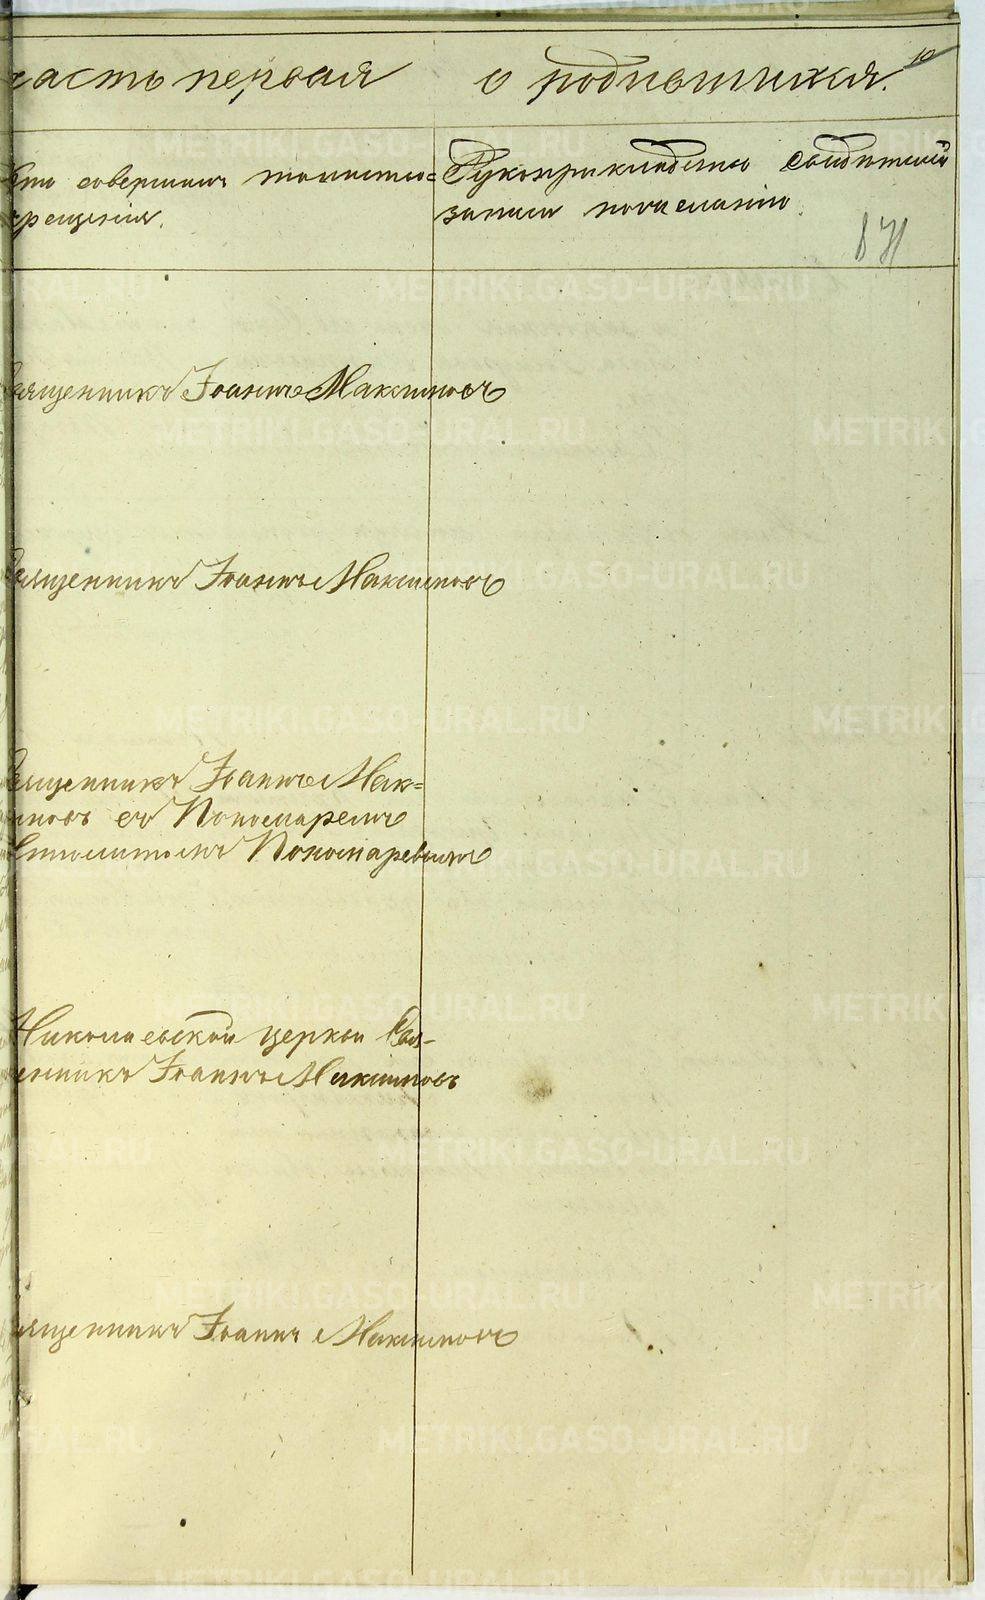 часть первая о родившихся. 10
Кто совершалъ таинство= Рукоприкладство свидѣтелей
крещенія. записи по желанію.
871
Священникъ Іоаннъ Максимовъ
Священникъ Іоаннъ Максимовъ
Священникъ Іоаннъ Мак=
симовъ съ Пономаремъ
Пономаревымъ
Николаевской церкви Свя-
щенникъ Іоаннъ Максимовъ
Священникъ Іоаннъ Максимовъ
METRIKI.GASO-URAL.RU